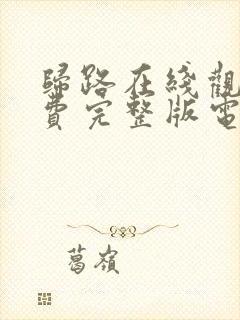 歸路在綫觀
費完整版電
葛嶺